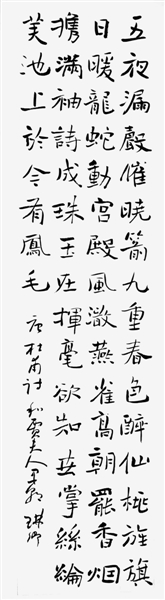 五夜漏聲催曉箭九重春色醉仙桃旌旗
日暖龍蛇動宮殿風微燕雀高朝罷香烟
攜滿袖詩成珠玉在揮毫欲知世掌絲綸
美池上於今有鳳毛 唐杜甫詩和賈舍人早朝